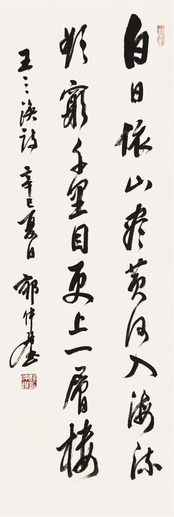 白日依山尽黄河入海流
欲穷千里目更上一层楼
王之涣诗 辛巳夏日